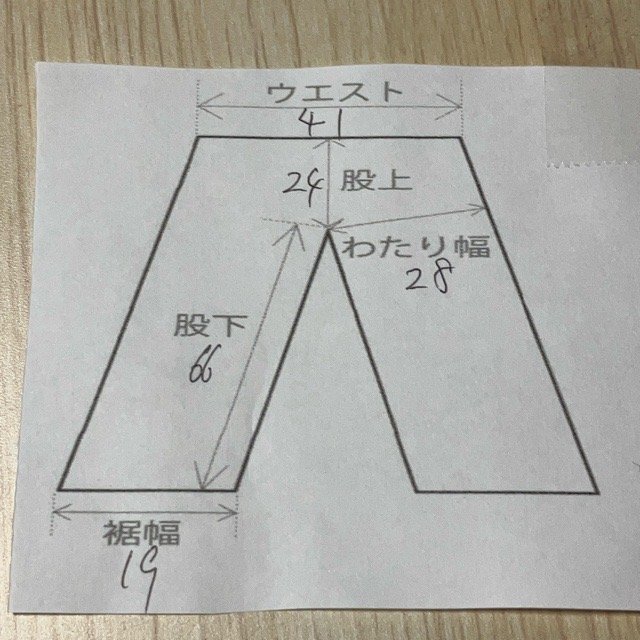 ウエスト
41
24 股上
わたり幅
28
股下
66
裾幅
19